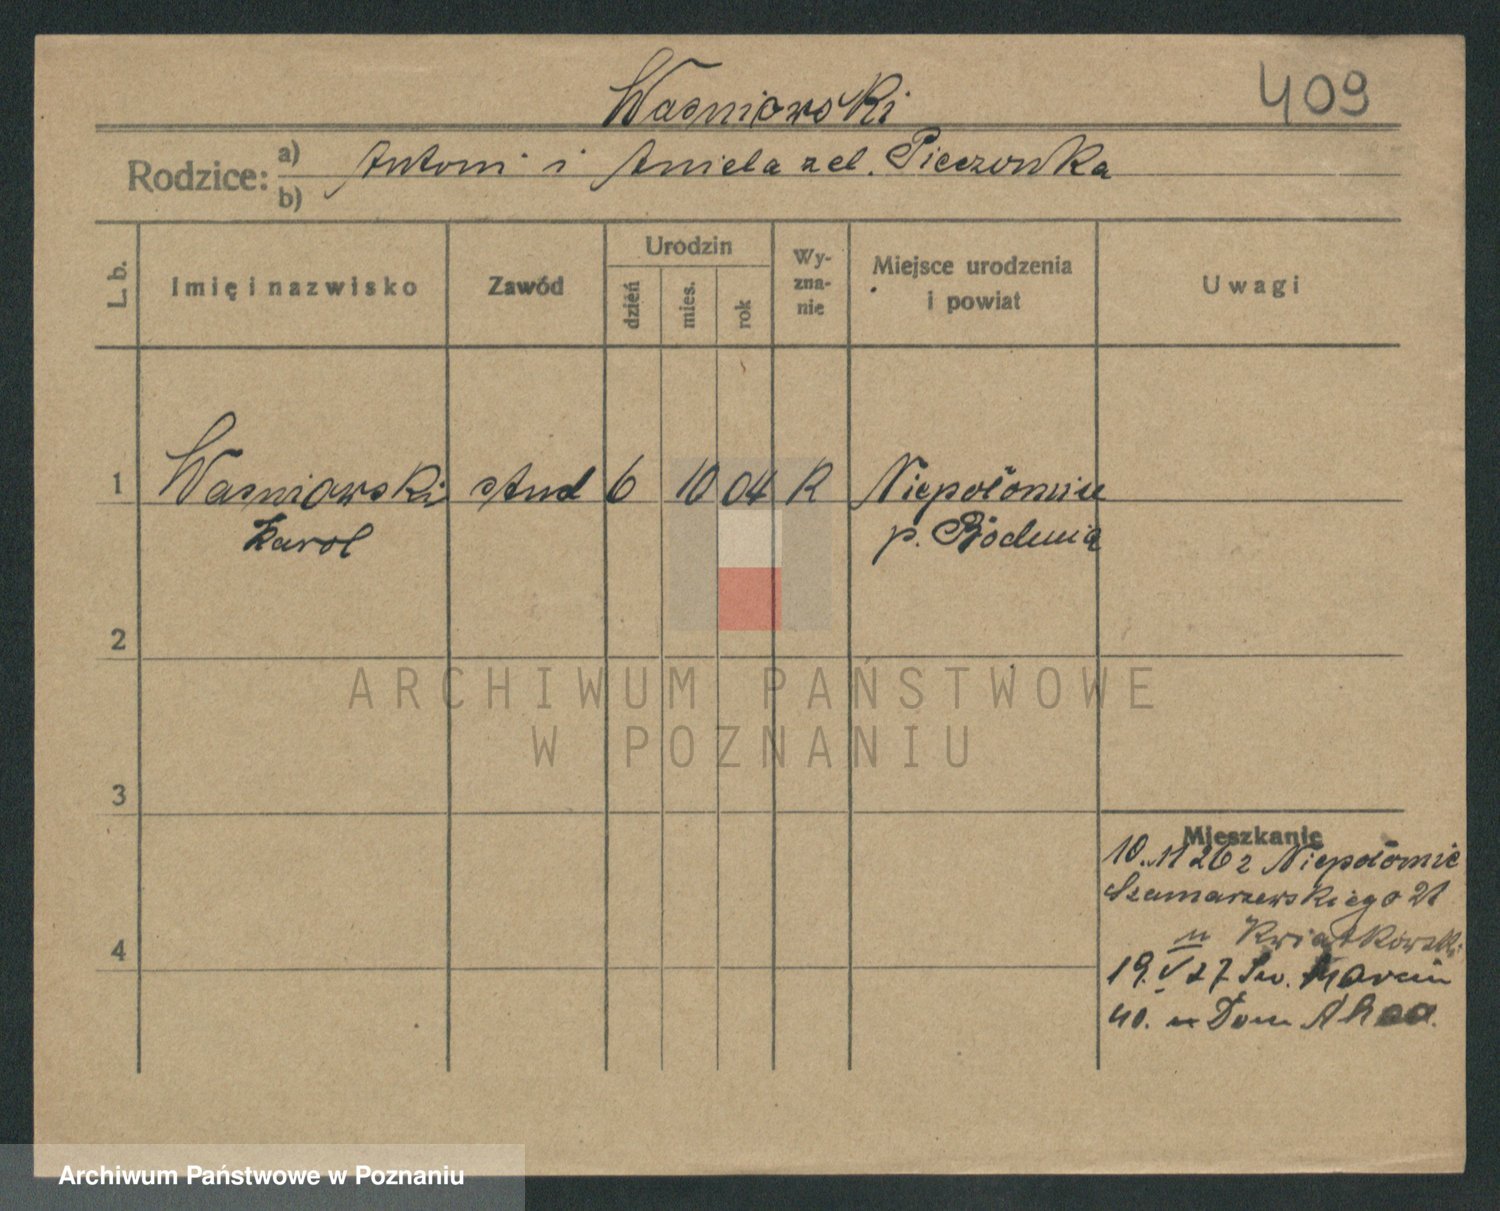 Wasniowski
409
Rodzice: a) Antoni i Aniela zd. Pieczonka
b)
L. b.
Imię i nazwisko
Zawód
Urodzin
dzień
mies.
rok
Wy-
zna-
nie
Miejsce urodzenia
i powiat
Uwagi
1 Wasniowski stud 6 10 04 R Niepołomice
Karol p. Bochnia
2
3
4
Mieszkanie
10. 11 26 z Niepołomic
Szamarzewskiego 21
u Kwiatkowski
19. V 27 Św. Marcin
40. Dom Akad.
ARCHIWUM PAŃSTWOWE
W POZNANIU
Archiwum Państwowe w Poznaniu